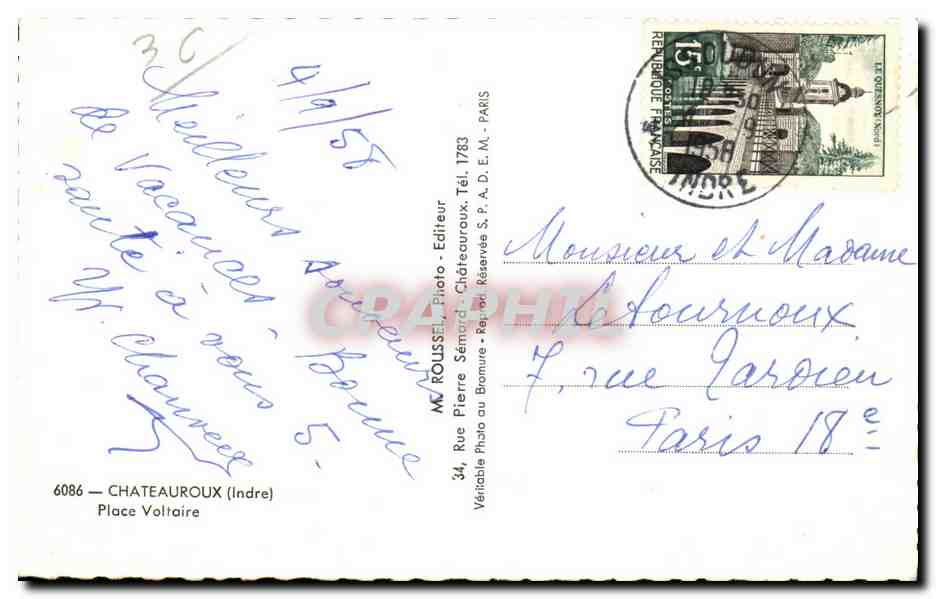 3 C
4/9/58
Meilleurs souvenirs
de Vacances Bonne
santé à vous 5.
Y. Chauveau
6086 — CHATEAUROUX (Indre)
Place Voltaire
M. ROUSSEL, Photo - Editeur
34, Rue Pierre Sémard - Châteauroux. Tél. 1783
Véritable Photo au Bromure - Reprod. Réservée S. P. A. D. E. M. - PARIS
CPAPHIL
15f
POSTES
REPUBLIQUE FRANÇAISE
LE QUESNOY (Nord)
1958
INDRE
Monsieur et Madame
Letournoux
7, rue Tardieu
Paris 18e